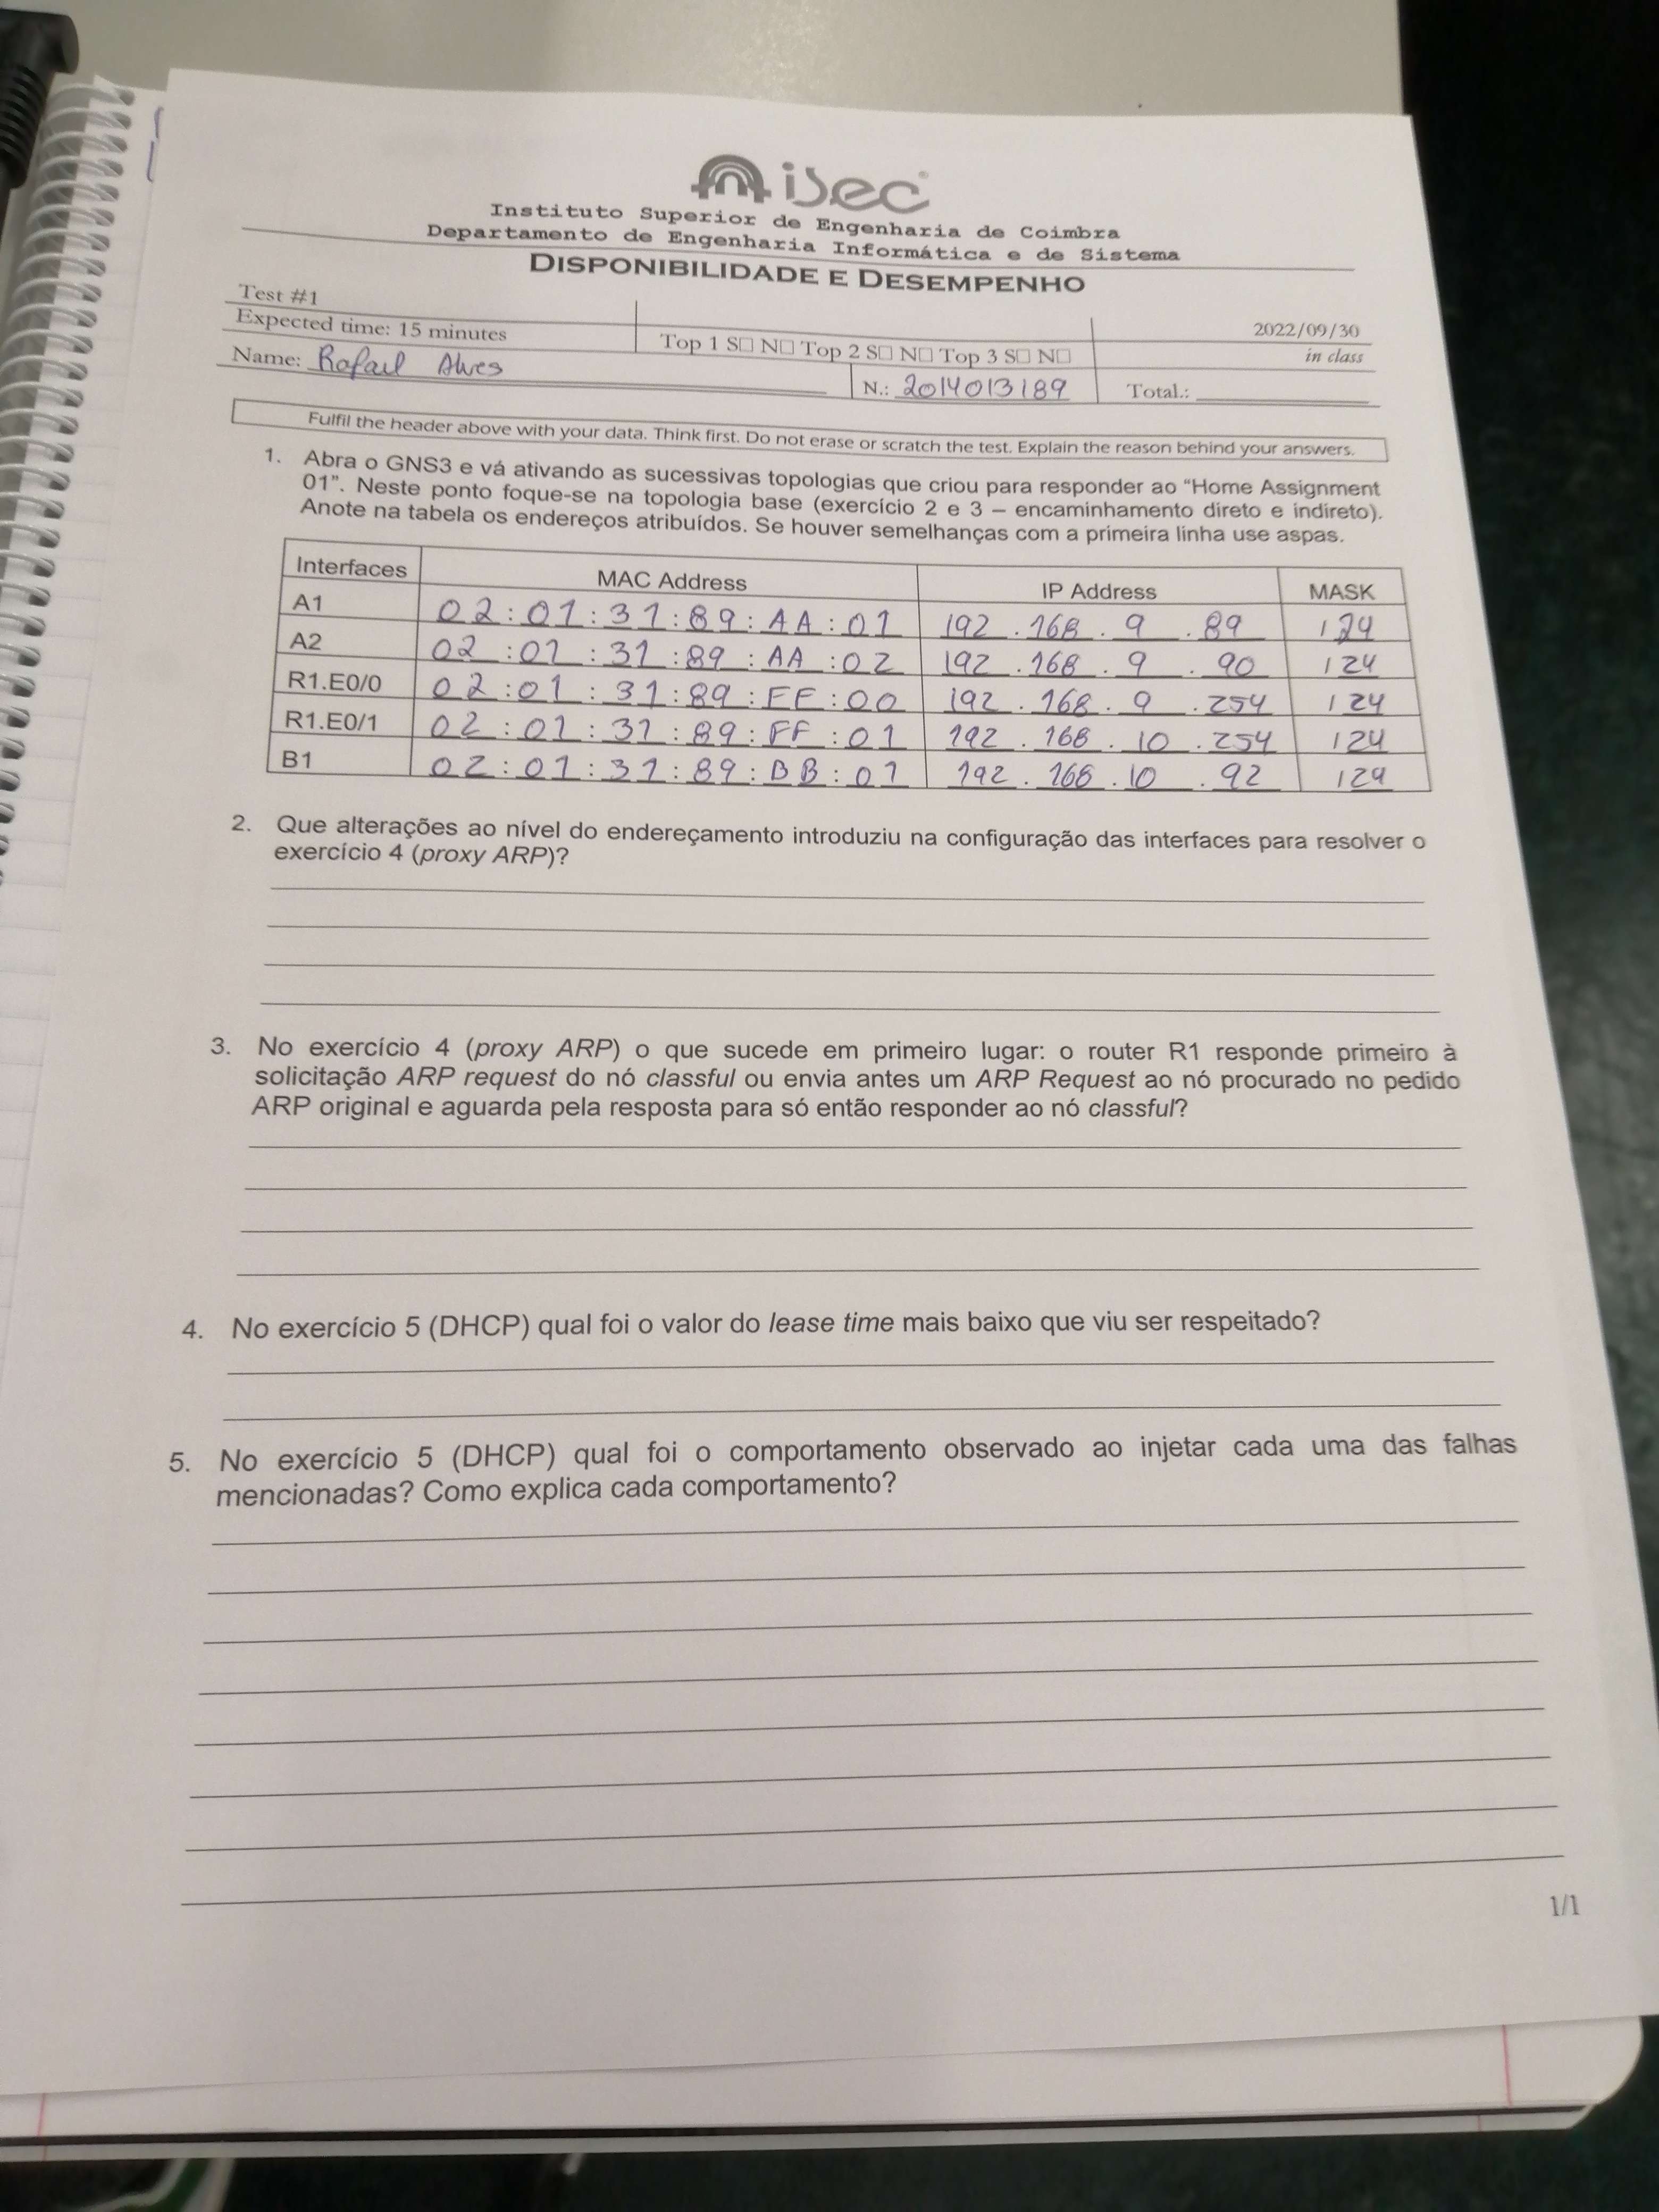 isec
Instituto Superior de Engenharia de Coimbra
Departamento de Engenharia Informática e de Sistema
DISPONIBILIDADE E DESEMPENHO
Test #1
Expected time: 15 minutes
Top 1 S□ N□ Top 2 S□ N□ Top 3 S□ N□
2022/09/30
in class
Name: Rafael Alves
N.: 2014013189
Total.:
Fulfil the header above with your data. Think first. Do not erase or scratch the test. Explain the reason behind your answers.
1. Abra o GNS3 e vá ativando as sucessivas topologias que criou para responder ao “Home Assignment
01”. Neste ponto foque-se na topologia base (exercício 2 e 3 – encaminhamento direto e indireto).
Anote na tabela os endereços atribuídos. Se houver semelhanças com a primeira linha use aspas.
Interfaces MAC Address IP Address MASK
A1 02:01:31:89:AA:01 192.168.9.89 /24
A2 02:01:31:89:AA:02 192.168.9.90 /24
R1.E0/0 02:01:31:89:FF:00 192.168.9.254 /24
R1.E0/1 02:01:31:89:FF:01 192.168.10.254 /24
B1 02:01:31:89:BB:01 192.168.10.92 /24
2. Que alterações ao nível do endereçamento introduziu na configuração das interfaces para resolver o
exercício 4 (proxy ARP)?
3. No exercício 4 (proxy ARP) o que sucede em primeiro lugar: o router R1 responde primeiro à
solicitação ARP request do nó classful ou envia antes um ARP Request ao nó procurado no pedido
ARP original e aguarda pela resposta para só então responder ao nó classful?
4. No exercício 5 (DHCP) qual foi o valor do lease time mais baixo que viu ser respeitado?
5. No exercício 5 (DHCP) qual foi o comportamento observado ao injetar cada uma das falhas
mencionadas? Como explica cada comportamento?
1/1